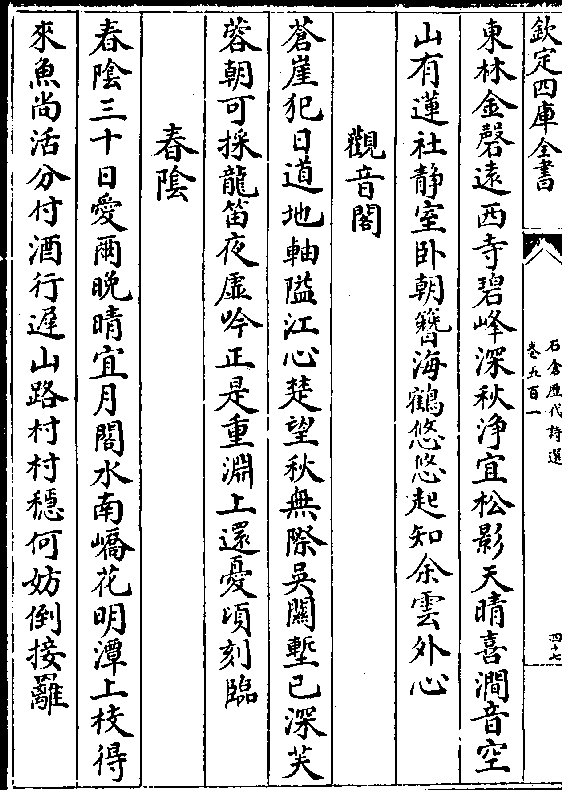 欽定四庫全書
石倉歷代詩選
卷五百一
四十七
東林金磬遠西寺碧峰深秋浄宜松影天晴喜澗音空
山有蓮社静室卧朝簪海鶴悠悠起知余雲外心
觀音閣
蒼崖犯日道地軸隘江心楚望秋無際吳關塹已深芙
蓉朝可採龍笛夜虛吟正是重淵上還憂頃刻臨
春陰
春陰三十日愛爾晚晴宜月閣水南嶠花明潭上枝得
來魚尚活分付酒行遲山路村村穩何妨倒接䍦